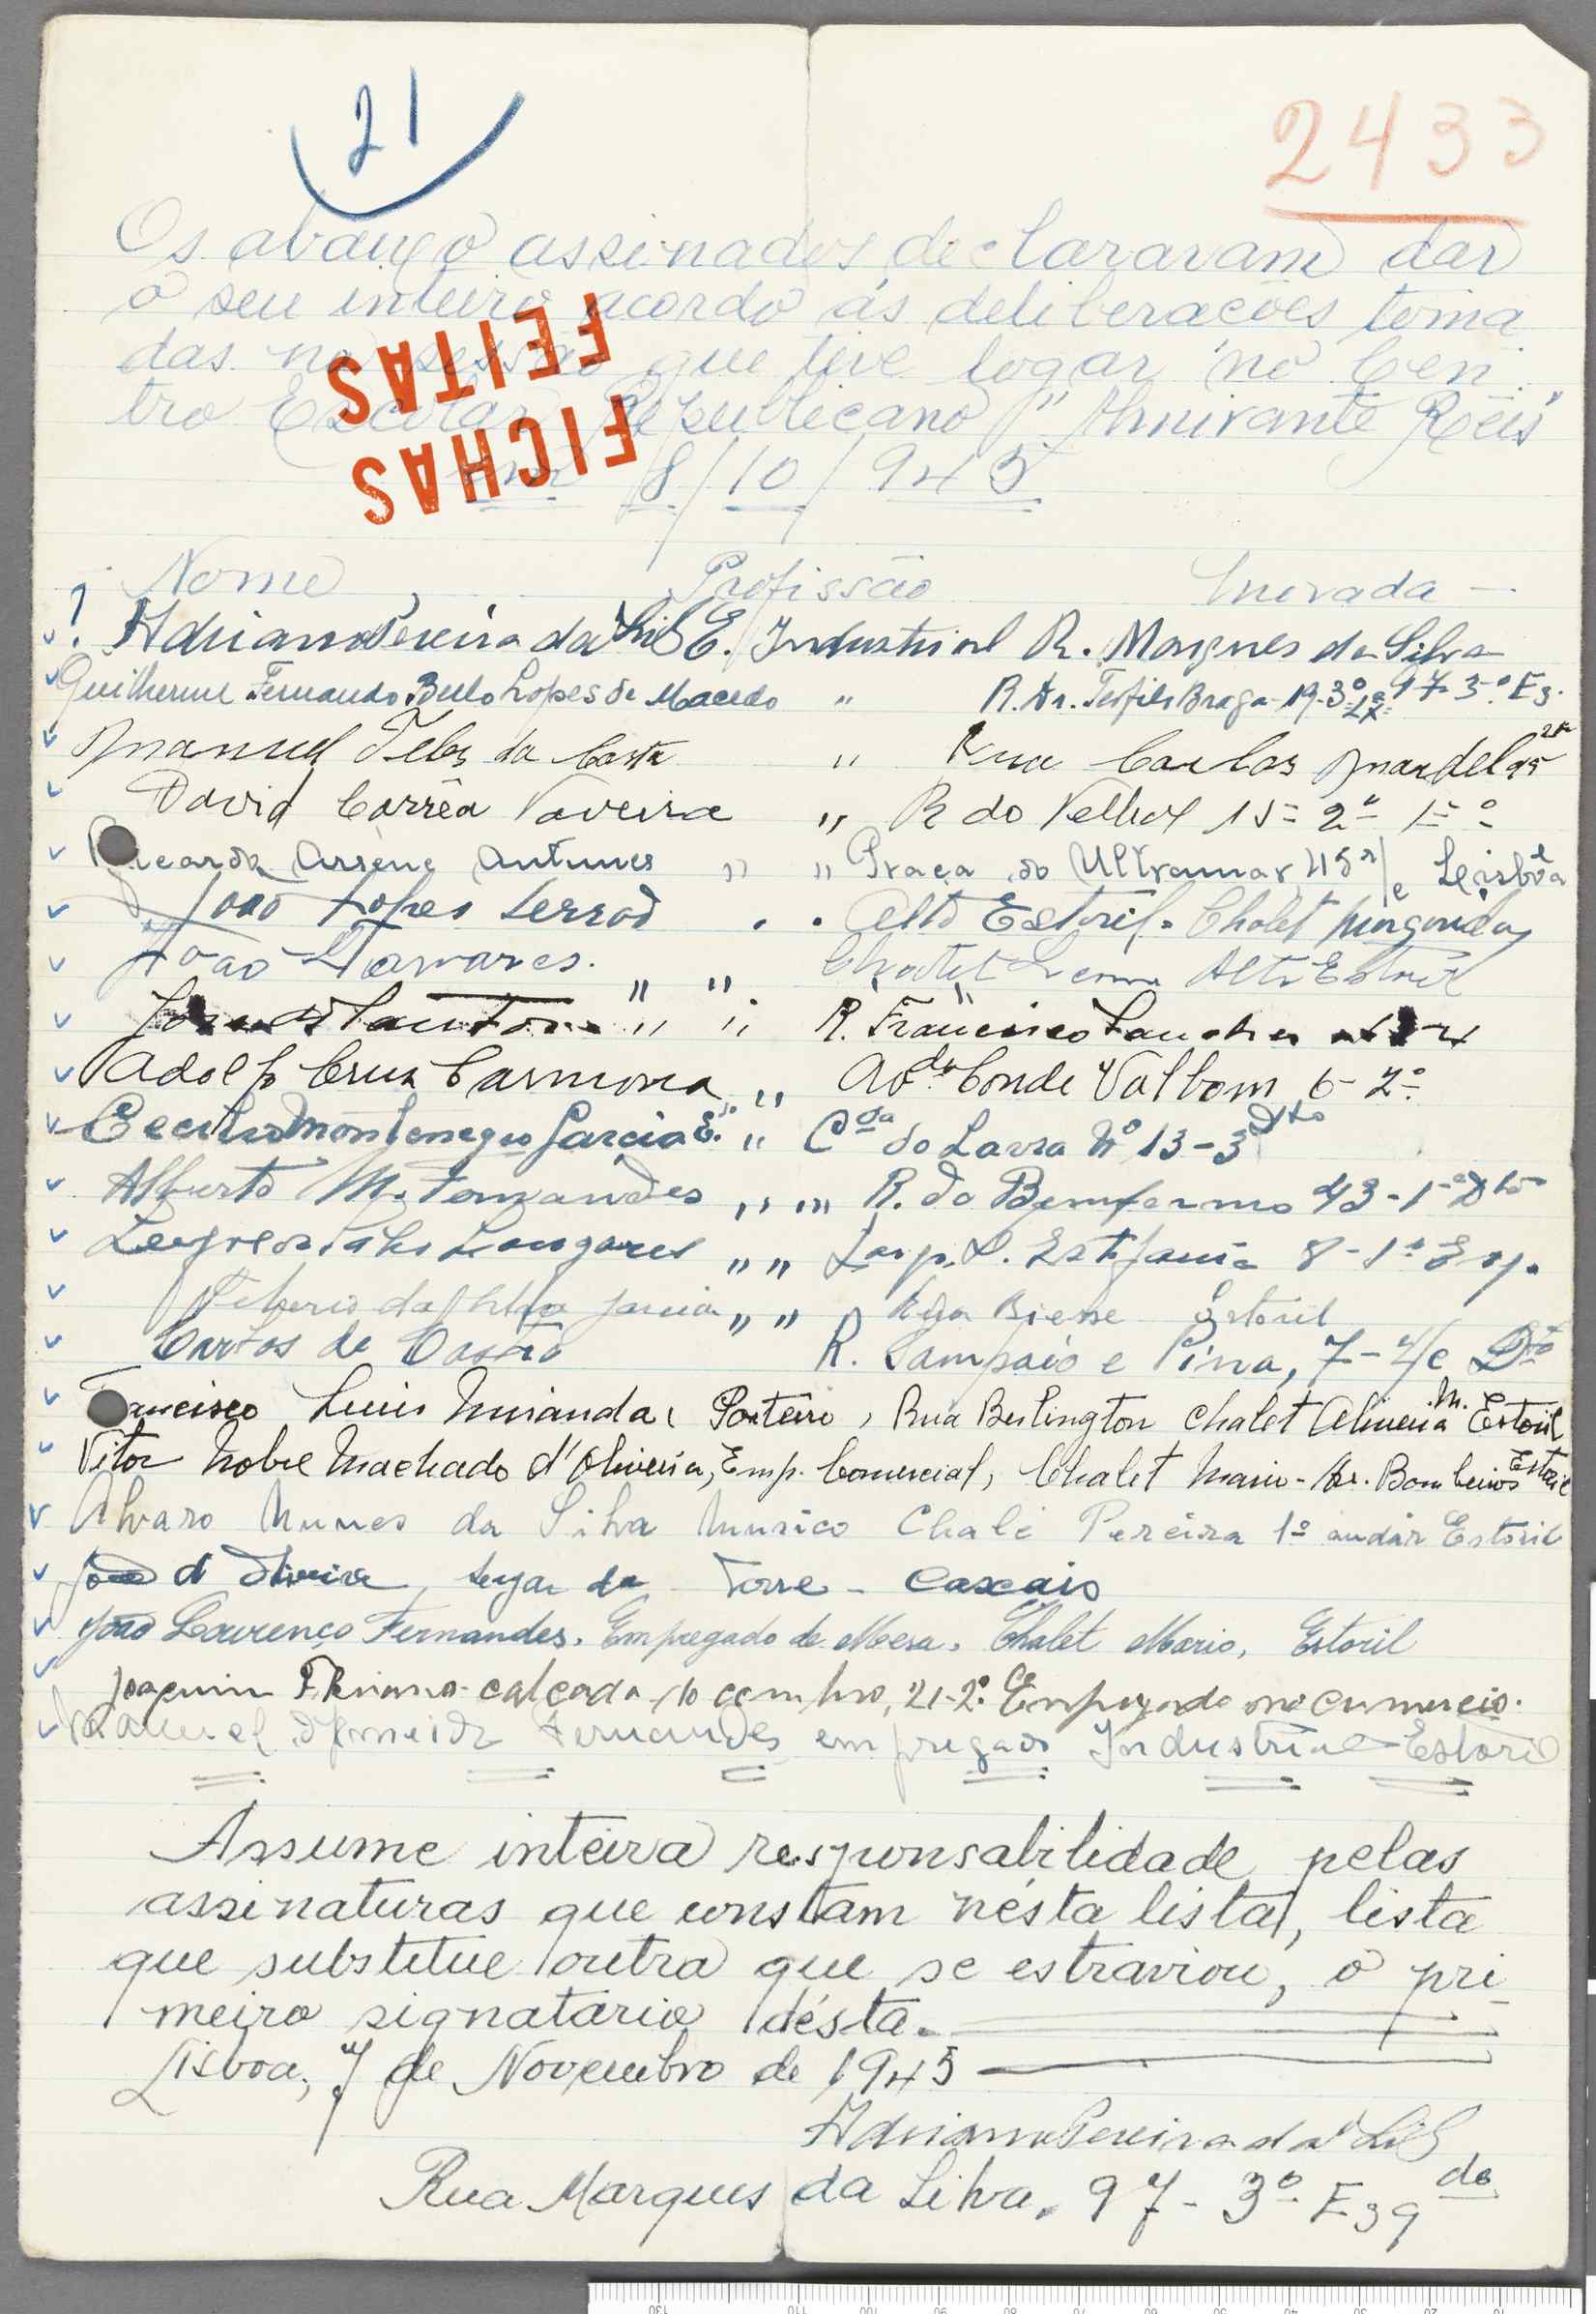 21
2433
Os abaixo assinados declararam dar
o seu inteiro acordo ás deliberações toma
das na sessão que teve logar no Cen
tro Escolar Republicano "Almirante Reis"
em 8/10/945
FICHAS
FEITAS
Nome, Profissão Morada
Adriano Pereira da Silva E. Industrial R. Marques da Silva
97-3º Es.
Guilherme Fernando Bello Lopes de Macedo " R. Dr. Teófilo Braga 19-3º Lx
Manuel Teles da Costa " Rua Carlos Mardel
David Corrêa Taveira " R do Velhol 15-2º
Ricardo Arsene Antunes " " Praça do Ultramar, 45 r/c Lisbôa
João Lopes Serrod . . Alto Estoril. Chalet
João Tavares. " " Chalet Alto Estoril
" " R. Francisco Sanches
Adolfo Cruz Carmona " Avda Conde Valbom 6-2º
Cecilio Montenegro Garcia E. " " Cda do Lavra Nº 13-3 Dto
Alberto M. Fernandes " " R. do Bemformoso 43-1º Dto
" " Larg. D. Estefania 8-1º Esq.
da Silva Garcia " " Estoril
Carlos de R. Sampaio e Pina, 7-4/e Dto
Francisco Luis Miranda, Porteiro, Rua Berlington Chalet Oliveira M. Estoril
Vitor Nobre Machado d'Oliveira, Emp. Comercial, Chalet Mario - Av. Bombeiros Estoril
Alvaro Nunes da Silva Musico Chalé Pereira 1º andár Estoril
José d'Oliveira, lugar da Torre - Cascais
João Lourenço Fernandes. Empregado de Mesa. Chalet Mario, Estoril
Joaquim calçada do combro, 21-2º. Empregado no cumercio.
Manuel Almeida Fernandes empregado Industrial Estoril
Assume inteira responsabilidade pelas
assinaturas que constam nésta lista, lista
que substitue outra que se estraviou, o pri
meiro signatario désta.
Lisboa, 7 de Novembro de 1945
Adriano Pereira da Silva
Rua Marques da Silva, 97-3º Esqdo